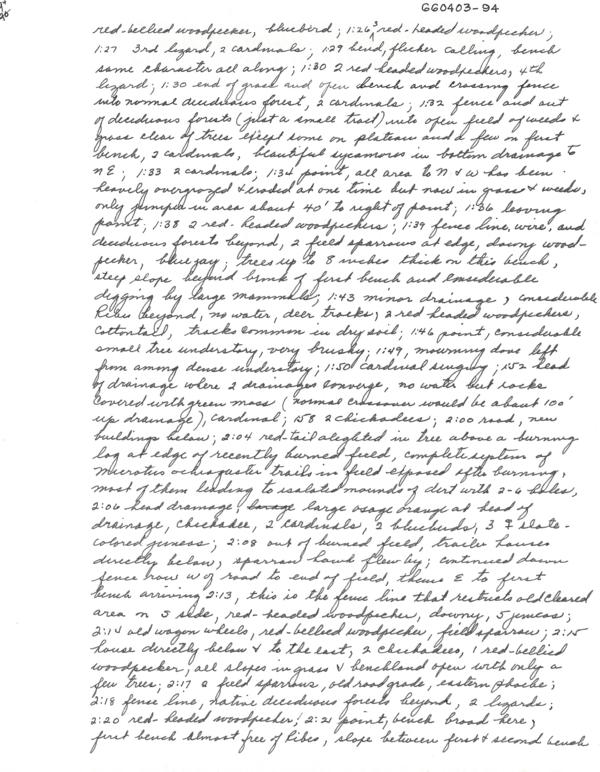 GG0403-94
red-bellied woodpecker, bluebird; 1:26 3 red-headed woodpecker;
1:27 3rd lizard, 2 cardinals; 1:29 bend, flicker calling, bench
same character all along; 1:30 2 red-headed woodpeckers, 4th
lizard; 1:30 end of grass and open bench and crossing fence
into normal deciduous forest, 2 cardinals; 1:32 fence and out
of deciduous forests (just a small tract) into open field of weeds &
grass clear of trees except some on plateau and a few on first
bench, 2 cardinals, beautiful sycamores in bottom drainage to
NE; 1:33 2 cardinals; 1:34 point, all area to N & W has been
heavily overgrazed & eroded at one time but now in grass & weeds,
only juniper in area about 40' to right of point; 1:36 leaving
point; 1:38 2 red-headed woodpeckers; 1:39 fence line, wire, and
deciduous forests beyond, 2 field sparrows at edge, downy wood-
pecker, blue jay; trees up to 8 inches thick on this bench,
steep slope beyond brink of first bench and considerable
digging by large mammals; 1:43 minor drainage, considerable
Ribes beyond, no water, deer tracks, 2 red headed woodpeckers,
cottontail, tracks common in dry soil; 1:46 point, considerable
small tree understory, very brushy; 1:49, mourning dove left
from among dense understory; 1:50 cardinal singing; 152 head
of drainage where 2 drainages converge, no water but rocks
covered with green moss (normal crossover would be about 100'
up drainage), cardinal; 158 2 chickadees; 2:00 road, new
buildings below; 2:04 red-tail alighted in tree above a burning
log at edge of recently burned field, complete system of
Microtus ochrogaster trails in field exposed after burning,
most of them leading to isolated mounds of dirt with 2-6 holes,
2:06 head drainage, large osage orange at head of
drainage, chickadee, 2 cardinals, 2 bluebirds, 3 ♀ slate-
colored juncos; 2:08 out of burned field, trailer houses
directly below, sparrow hawk flew by; continued down
fence row W of road to end of field, thence E to first
bench arriving 2:13, this is the fence line that restricts old cleared
area on S side, red-headed woodpecker, downy, 5 juncos;
2:14 old wagon wheels, red-bellied woodpecker, field sparrow; 2:15
house directly below & to the east, 2 chickadees, 1 red-bellied
woodpecker, all slopes in grass & benchland open with only a
few trees; 2:17 2 field sparrows, old road grade, eastern phoebe;
2:18 fense line, native deciduous forests beyond, 2 lizards;
2:20 red-headed woodpecker; 2:21 point, bench broad here,
first bench almost free of Ribes, slope between first & second bench